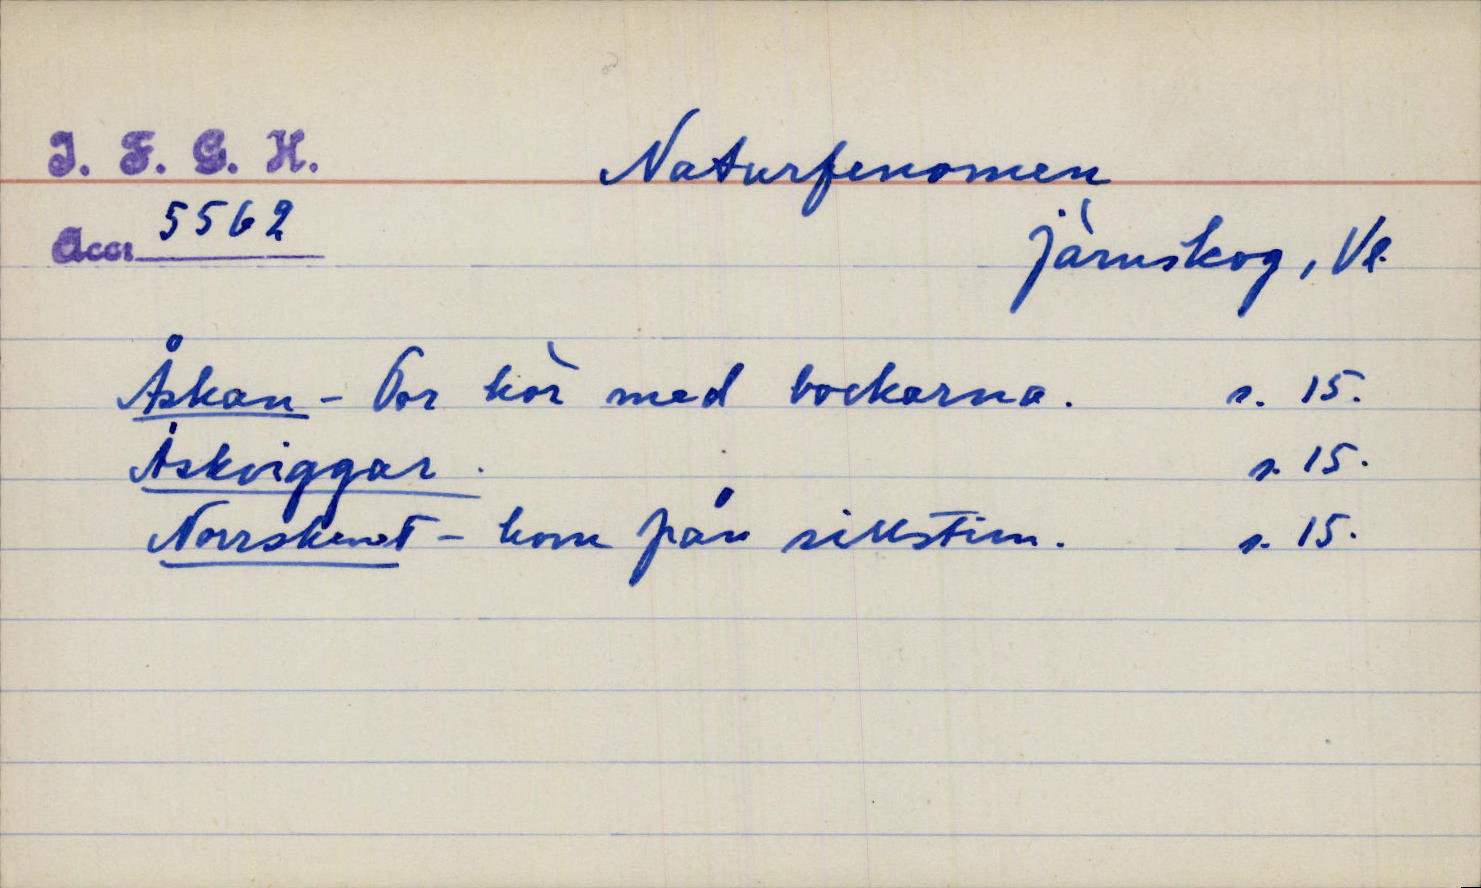 I. F. G. H.
Naturfenomen
Accr 5562
Järnskog, Vl.
Åskan - Tor kör med bockarna. s. 15.
Åskviggar. s. 15.
Norrskenet - kom från sillstim. s. 15.